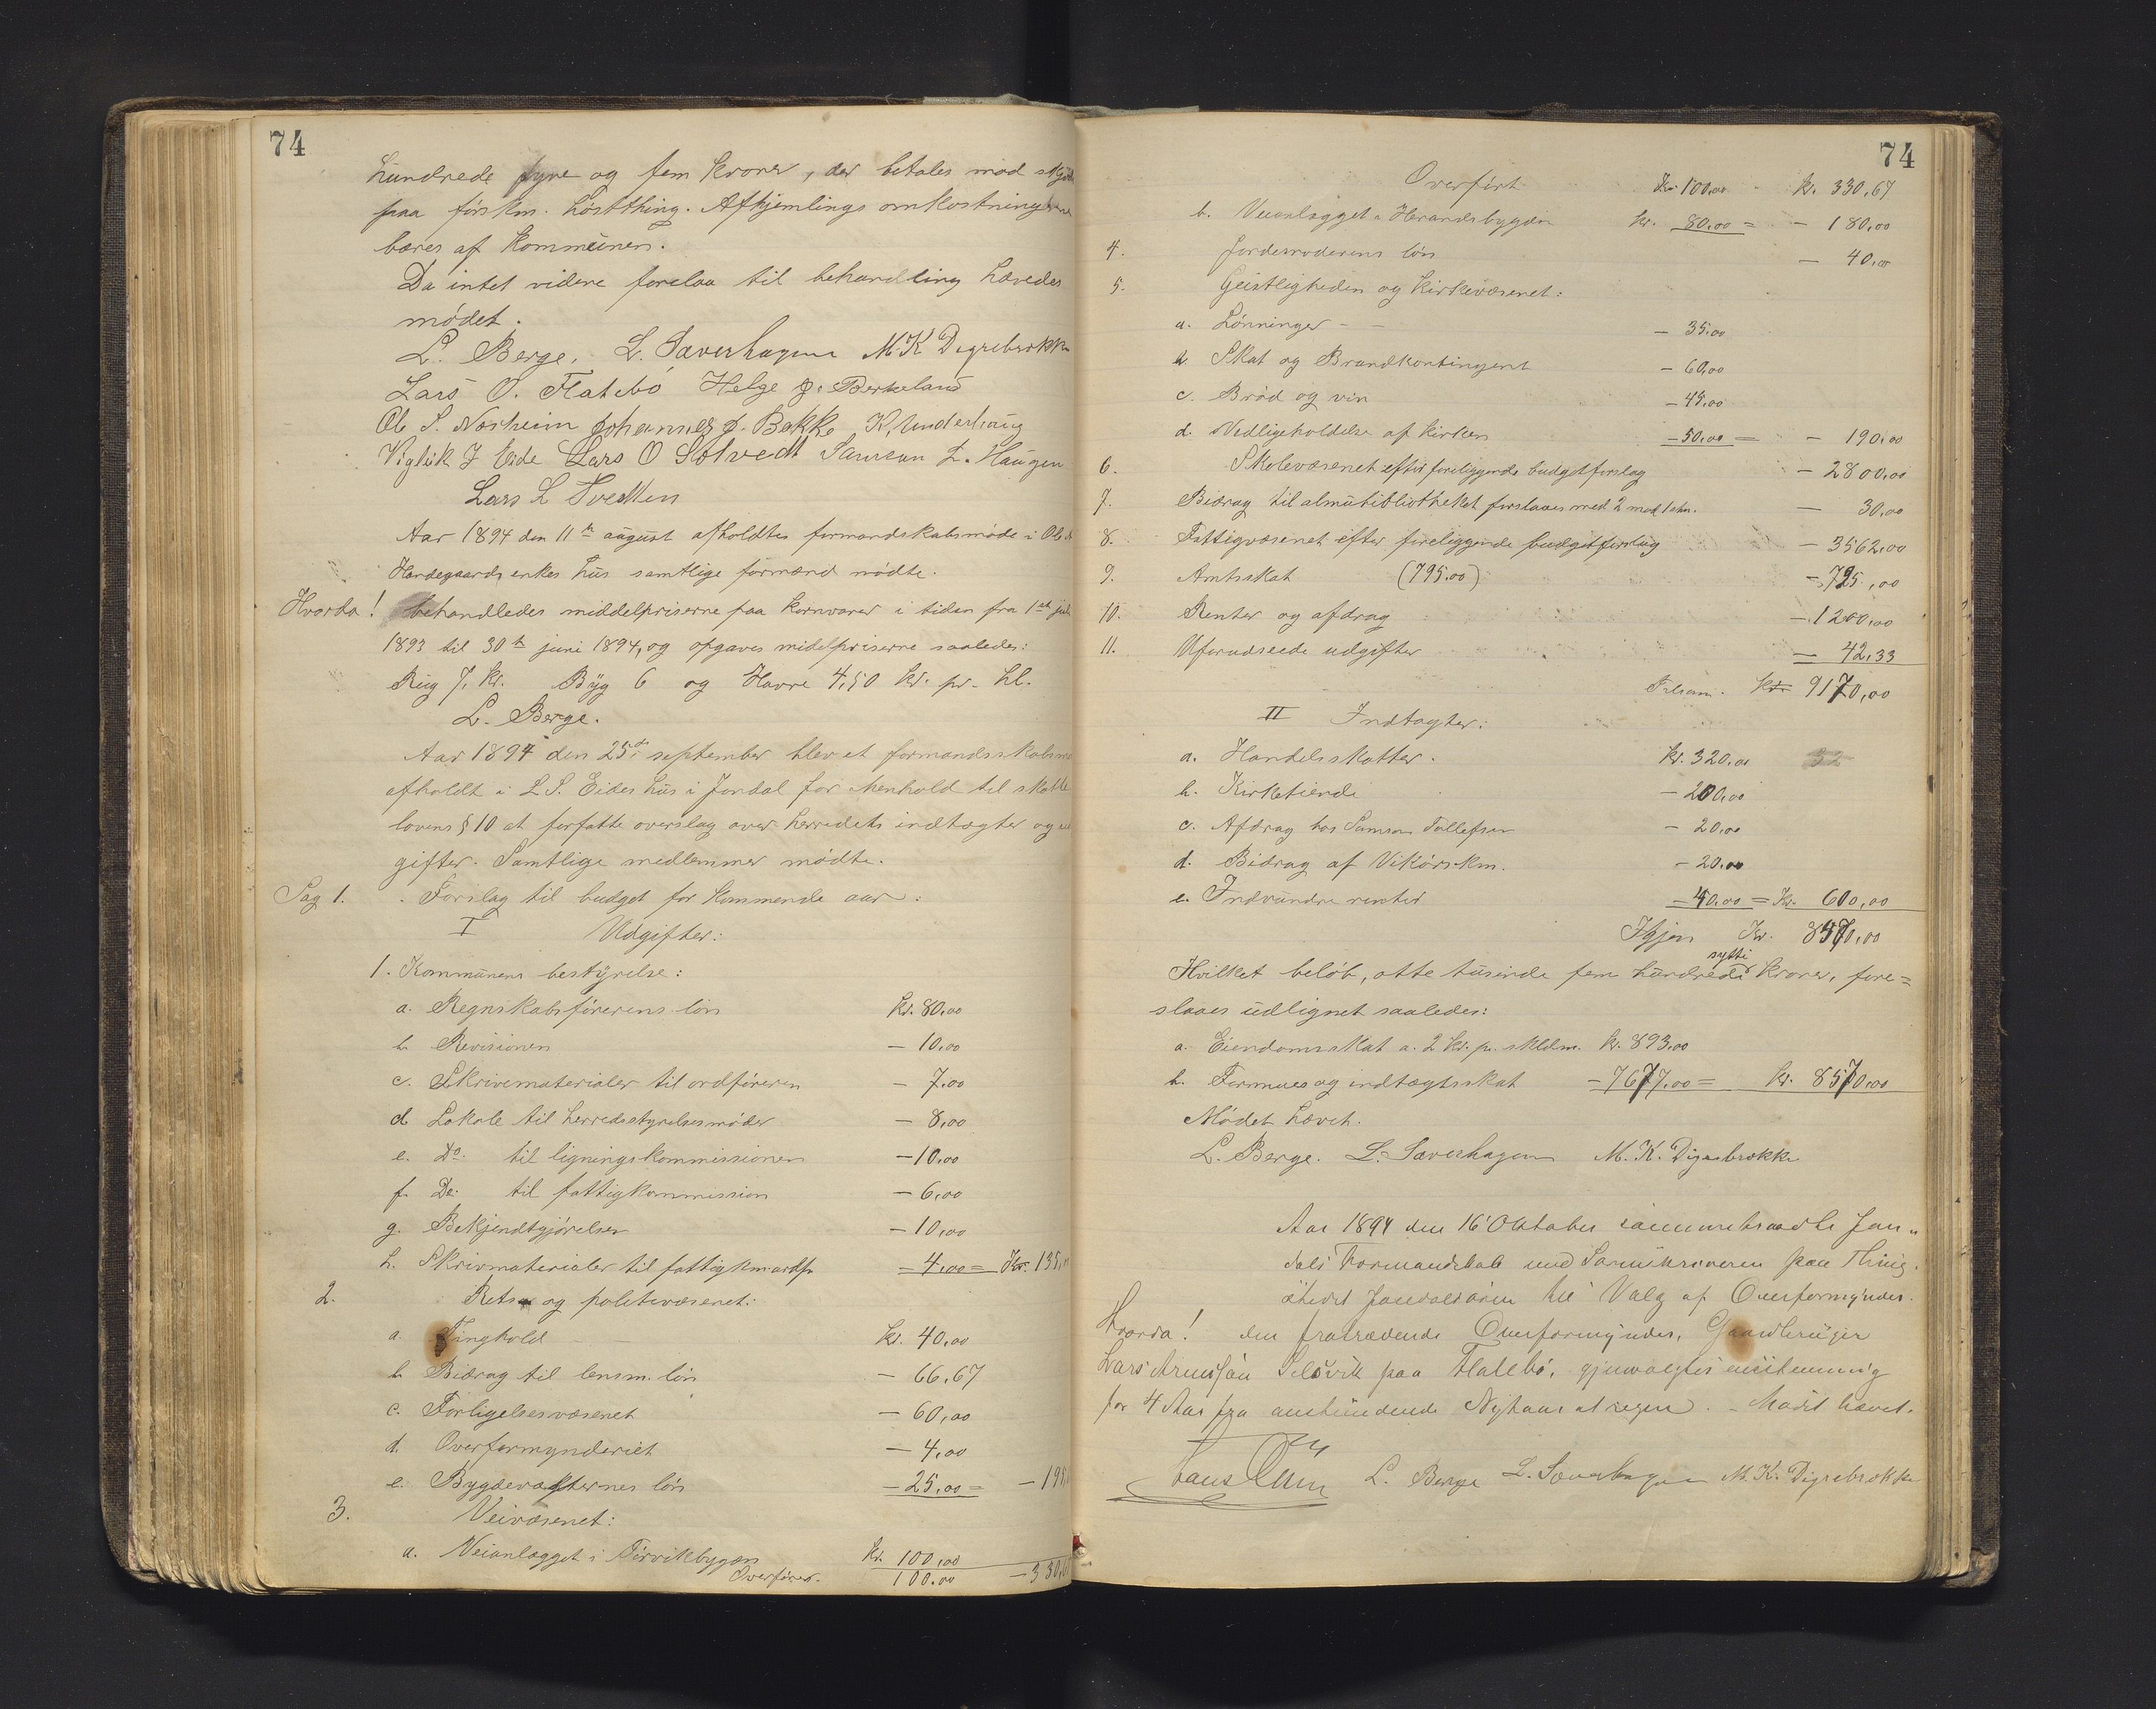 74
hundrede fyre og fem kroner, der betales mod skjøde
paa førstkm. høstthing. Afhjemlings omkostningerne
bæres af kommunen.
Da intet videre forelaa til behandling hævedes
mødet.
L. Berge. L. Saverhagen M K Digrebrekke
Lars O. Flatebø Helge J. Berkeland
Ole S. Næsheim Johannes J. Bakke K. Underhaug
Viglik J Eide Lars O Solvedt Samson L. Haugen
Lars L Tveitten
Aar 1894 den 11te august afholdtes formandskabsmøde i Ole
Hardegaards enkes hus samtlige formænd mødte.
Hvorda! behandledes middelpriserne paa kornvarer i tiden fra 1ste juli
1893 til 30te juni 1894, og opgaves midelpriserne saaledes:
Rug 7, kr. Byg 6 og Havre 4,50 kr. pr. hl.
L. Berge.
Aar 1894 den 25de september blev et formandsskabsmø
afholdt i L S. Eides hus i Jondal for i henhold til skatte
lovens § 10 at forfatte overslag over herredets indtægter og ud
gifter. Samtlige medlemmer mødte.
Sag 1. Forslag til budget for kommende aar:
I Udgifter:
1. Kommunens bestyrelse:
a. Regnskabsførerens løn kr. 80,00
b. Revisionen — 10,00
c. Skrivematerialer til ordføreren — 7,00
d. Lokale til herredsstyrelsesmøder — 8,00
e. Do. til ligningskommissionen — 10,00
f. Do. til fattigkommission — 6,00
g. Bekjendtgjørelser — 10,00
h. Skrivmaterialer til fattigkm. ordfr — 4,00 = Kr. 135,
2. Rets og politivæsenet:
a. Tinghold kr. 40,00
b. Bidrag til lensm. løn — 66,67
c. Forligelsesvæsenet — 60,00
d. Overformynderiet — 4,00
e. Bygdevægternes løn — 25,00 = — 195,
3. Veivæsenet:
a. Veianlægget i Torvikbygden kr. 100,00
Overføres. 100.00 — 330,6
74
Overført Kr. 100,00 kr. 330,67
b. Veianlægget i Herandsbygden kr. 80,00 = — 180,00
4. Jordemoderens løn — 40,00
5. Geistligheden og kirkevæsenet:
a. Lønninger — 35,00
b. Skat og Brandkontingent — 60,00
c. Brød og vin — 45,00
d. Vedligeholdelse af kirken — 50,00 = — 190,00
6. Skolevæsenet efter foreliggende budgetforslag — 2800,00
7. Bidrag til almubibliotheket forslaaes med 2 mod 1 stm. — 30,00
8. Fattigvæsenet efter foreliggende budgetforslag — 3562,00
9. Amtsskat (795,00) — 795,00
10. Renter og afdrag — 1200,00
11. Uforudseede udgifter — 42,33
Tilsam. kr. 9170,00
II Indtægter:
a. Handelsskatter. kr. 320,00
b. Kirketiende — 200,00
c. Afdrag hos Samson Tollefsen — 20,00
d. Bidrag af Vikørs km. — 20,00
e. Indvundne renter — 40,00 = Kr. 600,00
Igjen Kr. 8570,00
Hvilket beløb, otte tusinde fem hundrede sytti kroner, fore=
slaaes udlignet saaledes:
a. Eiendomsskat a. 2 kr. p. skldm. kr. 893,00
b. Formues og indtægtsskat — 7677,00 = kr. 8570,00
Mødet hævet.
L. Berge. L. Saverhagen M. K. Digrebrekke
Aar 1894 den 16 Oktober sammentraadte Jon„
dals Formandskab med Sorenskriveren paa Thing.
stedet Jondalsøren til Valg af Overformynder.
Hvorda! den fratrædende Overformynder, Gaardbruger
Lars Arnesen Selsvik paa Flatebø, gjenvalgtes enstemmig
for 4 Aar fra anstundende Nytaar at regne. – Mødet hævet.
L. Berge L. Saverhagen M. K. Digrebrekke